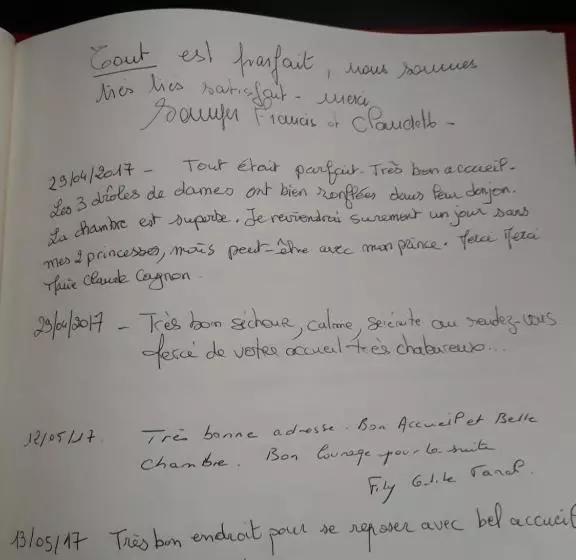 Tout est parfait, nous sommes
très très satisfait - merci
Francis et Claudette -
29/04/2017 - Tout était parfait. Très bon accueil.
Les 3 drôles de dames ont bien ronflées dans leur donjon.
La chambre est superbe. Je reviendrai surement un jour sans
mes 2 princesses, mais peut-être avec mon prince. Merci Merci
Marie Claude Cagnon.
29/04/2017 - Très bon séjour, calme, sérénité au rendez-vous
Merci de votre accueil très chaleureux...
12/05/17. Très bonne adresse. Bon Accueil et Belle
Chambre. Bon Courage pour la suite
13/05/17 Très bon endroit pour se reposer avec bel accueil